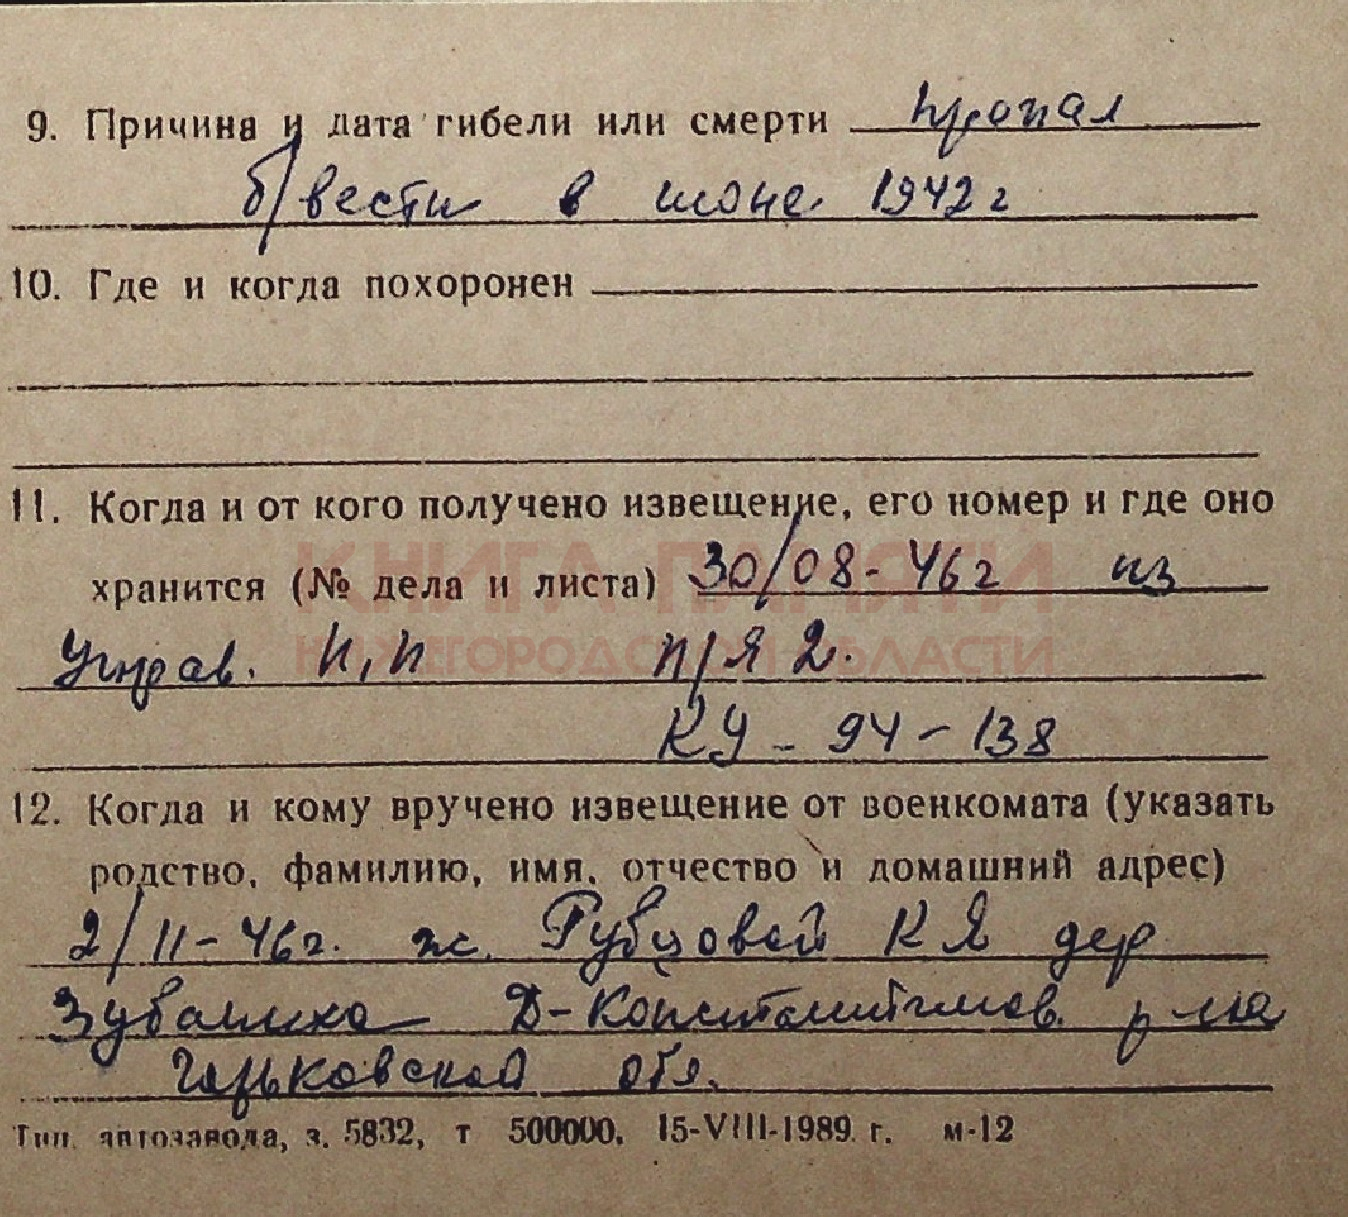 9. Причина и дата гибели или смерти пропал
б/вести в июне 1942 г
10. Где и когда похоронен
11. Когда и от кого получено извещение, его номер и где оно
КНИГА ПАМЯТИ
хранится (№ дела и листа) 30/08-46г из
НИЖЕГОРОДСКОЙ ОБЛАСТИ
Управ. п/я 2.
КУ - 94 - 138
12. Когда и кому вручено извещение от военкомата (указать
родство, фамилию, имя, отчество и домашний адрес)
2/11-46г. ж. Рубцовой К Я дер
Д-Константинов. р-на
Горьковской обл.
Тип. автозавода, з. 5832, т 500000. 15-VIII-1989 г. м-12